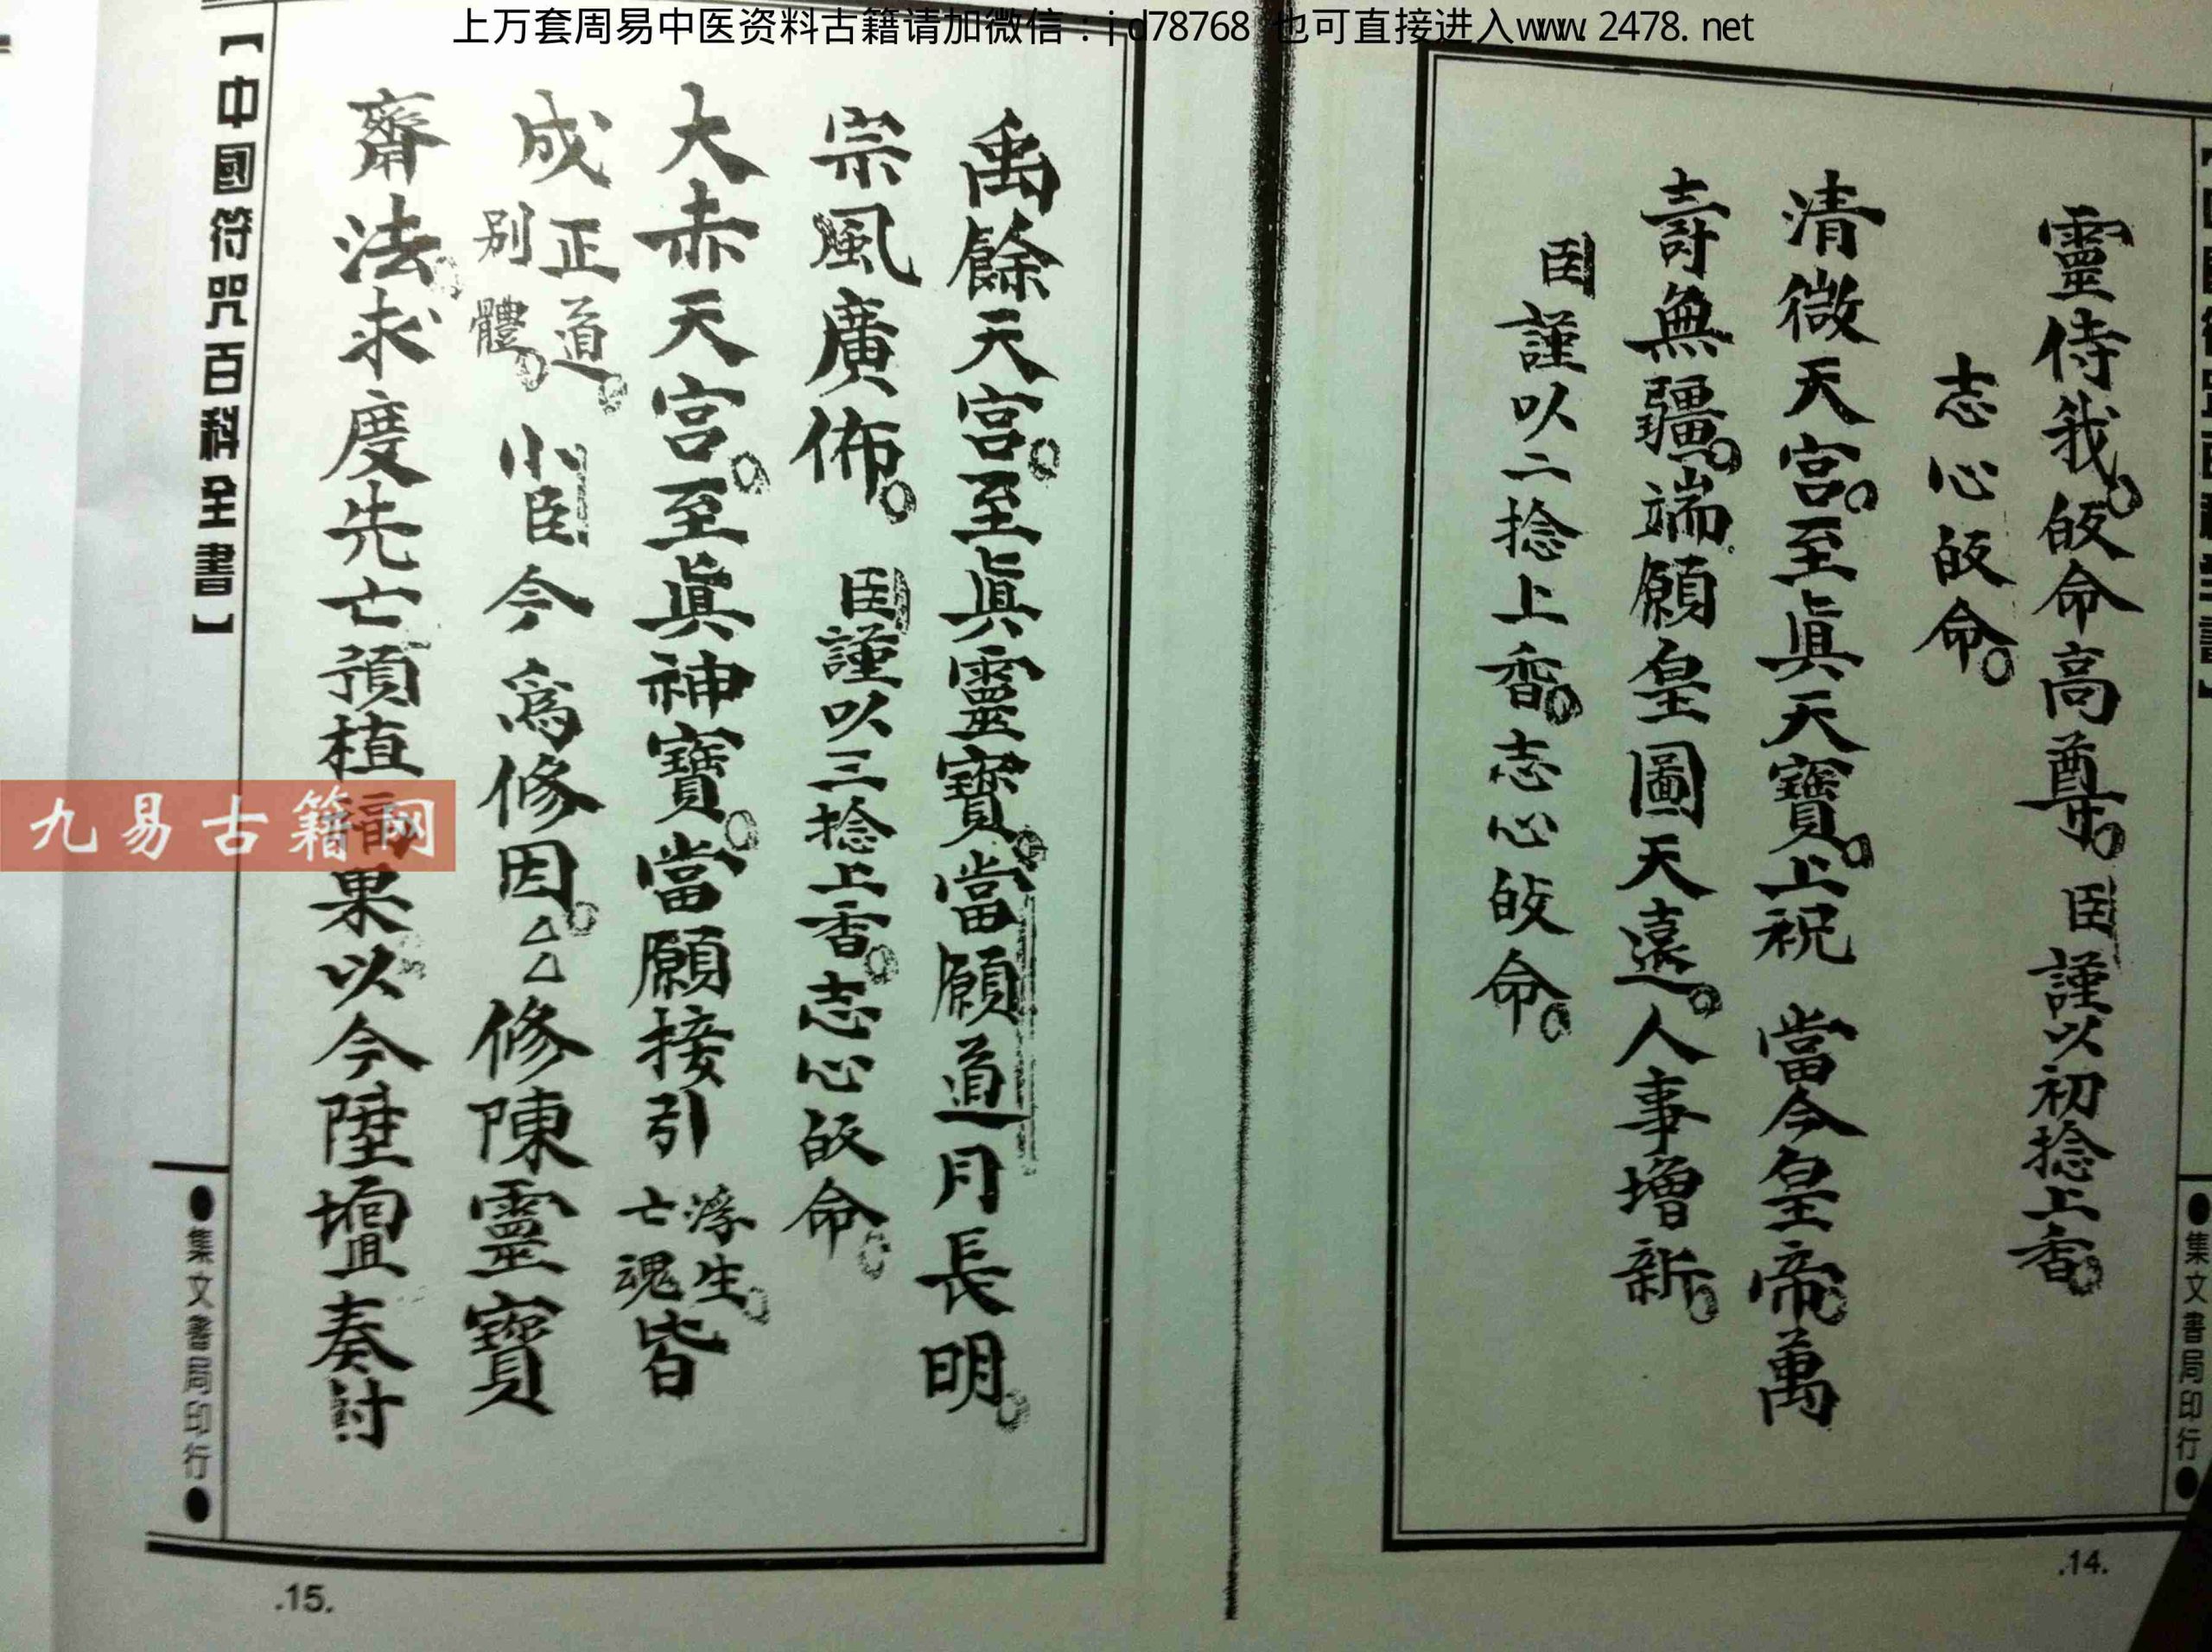 上万套周易中医资料古籍请加微信：jd78768 也可直接进入www.2478.net
靈侍我。皈命高尊。臣謹以初捻上香。
志心皈命。
清微天宮。至眞天寶。上祝 當今皇帝。萬
壽無疆。端願皇圖天遠。人事增新。
臣謹以二捻上香。志心皈命。
集文書局印行
.14.
禹餘天宮。至眞靈寶。當願道月長明。
宗風廣佈。臣謹以三捻上香。志心皈命。
大赤天宮。至眞神寶。當願接引浮生。亡魂皆
成正道。別體。小臣今為修因。△△修陳靈寶
齋法。求度先亡預植福果以今陞壇奏
【中國符咒百科全書】
集文書局印行
.15.
九易古籍网